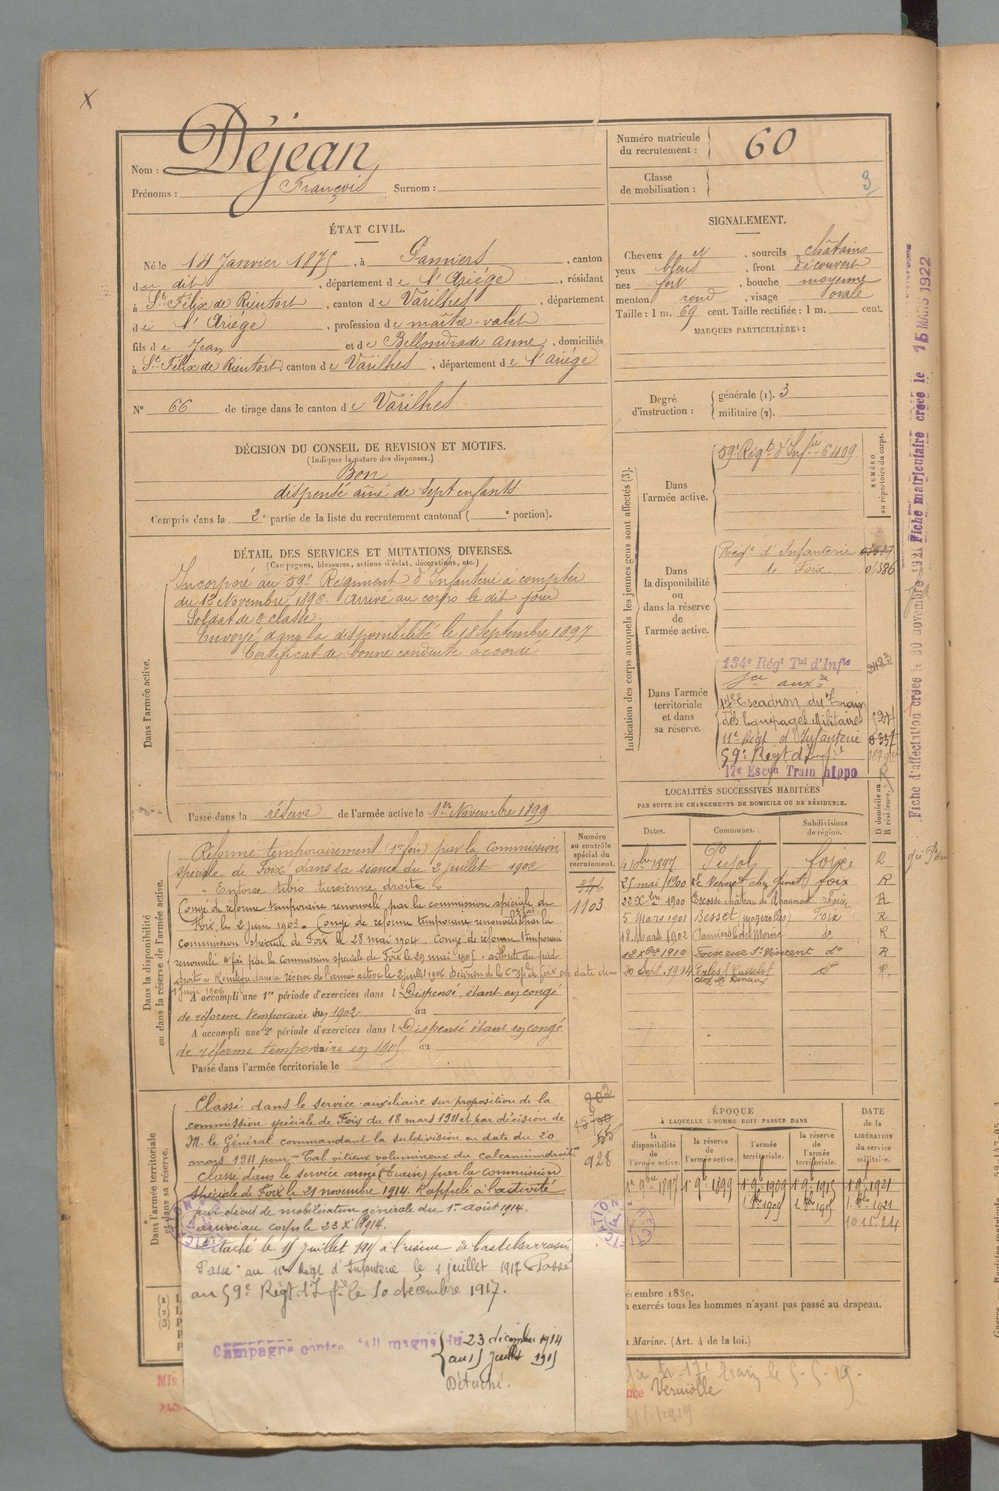 X
Nom : Déjean
Prénoms : François Surnom :
Numéro matricule du recrutement : 60
Classe de mobilisation : 3
ÉTAT CIVIL.
Né le 14 Janvier 1875, à Pamiers, canton
du dit, département de l'Ariége, résidant
à St Félix de Rieutort, canton de Varilhes, département
de l'Ariége, profession de maître-valet
fils de Jean et de Bellondrade anne, domiciliés
à St Félix de Rieutort, canton de Varilhes, département de l'ariége
N° 66 de tirage dans le canton de Varilhes
SIGNALEMENT.
Cheveux et, sourcils châtains
yeux bleus, front découvert
nez fort, bouche moyenne
menton rond, visage ovale
Taille : 1 m. 69 cent. Taille rectifiée : 1 m. cent.
MARQUES PARTICULIÈRES :
Degré d'instruction : générale (1). 3
militaire (2).
DÉCISION DU CONSEIL DE REVISION ET MOTIFS.
(Indiquer la nature des dispenses.)
Bon
dispensé aîné de sept enfants
Compris dans la 2e partie de la liste du recrutement cantonal ( e portion).
DÉTAIL DES SERVICES ET MUTATIONS DIVERSES.
(Campagnes, blessures, actions d'éclat, décorations, etc.)
Dans l'armée active.
Incorporé au 59e Régiment d'Infanterie à compter
du 1er Novembre 1896. Arrivé au corps le dit jour
Soldat de 2e classe.
Envoyé dans la disponibilité le 18 Septembre 1897
Certificat de bonne conduite accordé
Passé dans la réserve de l'armée active le 1er Novembre 1899
Indication des corps auxquels les jeunes gens sont affectés (3).
NUMÉRO au répertoire du corps.
Dans l'armée active.
59e Régt d'Infie 6409
Dans la disponibilité ou dans la réserve de l'armée active.
Régt d'Infanterie
de Foix 01386
Dans l'armée territoriale et dans sa réserve.
134e Régt Tal d'Infie
Sce auxre
Escadron du Train
des Equipages Militaires
11e Régt d'Infanterie
59e Regt d'Infie
17e Escon Train hippo
Fiche d'affectation créée le 30 novembre 1921
Fiche matriculaire créée le 15 MARS 1922
LOCALITÉS SUCCESSIVES HABITÉES
PAR SUITE DE CHANGEMENTS DE DOMICILE OU DE RÉSIDENCE.
Dates. Communes. Subdivisions de région. D domicile ou R résidence.
4 Xbre 1897 Pujol foix R
25 mai 1900 Le Vernet chez foix R
22 Xbre 1900 Foix R
5 Mars 1901 Besset Foix R
18 Mars 1902 do R
10 Xbre 1910 Foix rue St Vincent do R
20 Sept. 1914 do R
Dans la disponibilité ou dans la réserve de l'armée active.
Numéro au contrôle spécial du recrutement.
1103
Réformé temporairement (1re fois) par la Commission
spéciale de Foix, dans la séance du 2 juillet 1902
"Entorse tibio tarsienne droite"
Congé de réforme temporaire renouvelé par la commission spéciale de
Foix le 2 juin 1903. Congé de réforme temporaire renouvelé par la
commission spéciale de Foix le 28 mai 1904. Congé de réforme temporaire
renouvelé par la Commission spéciale de Foix le 23 mai 1905
1 juin 1906
A accompli une 1re période d'exercices dans l Dispensé étant en congé
de réforme temporaire en 1902 au
A accompli une 2e période d'exercices dans l Dispensé étant en congé
de réforme temporaire en 1905 au
Passé dans l'armée territoriale le
Dans l'armée territoriale et dans sa réserve.
Classé dans le service auxiliaire sur proposition de la
commission spéciale de Foix du 18 mars 1911 et par décision de
M. le Général commandant la subdivision en date du 20
mars 1911 pour "Cal vitieux volumineux du calcaneum droit"
Classé dans le service armé (Train) par la Commission
spéciale de Foix le 21 novembre 1914. Rappelé à l'activité
par décret de mobilisation générale du 1er Août 1914.
arrivé au corps le 23 X 1914.
928
Détaché le 15 juillet 1915 à l'usine de Castelsarrasin
Passé au 11e Régt d'Infanterie le 1 juillet 1917 Passé
au 59e Régt d'Infie le 10 décembre 1917.
Campagne contre l'Allemagne du 23 décembre 1914
au 15 juillet 1915
Détaché.
ÉPOQUE
À LAQUELLE L'HOMME DOIT PASSER DANS
DATE de la LIBÉRATION du service militaire.
la disponibilité de l'armée active. la réserve de l'armée active. l'armée territoriale. la réserve de l'armée territoriale.
1er 9bre 1897 1er 9bre 1899 1er 9bre 1909 1er 9bre 1915 1er 9bre 1921
10 15-24
décembre 1889.
exercés tous les hommes n'ayant pas passé au drapeau.
Marine. (Art. 4 de la loi.)
17e train le 5-5-19.
Verniolle